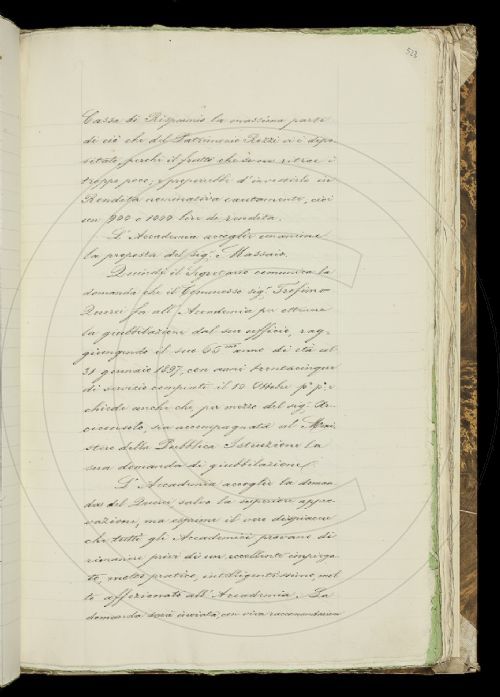 523
Cassa di Risparmio la massima parte
di ciò che del Patrimonio Rezzi vi è depo-
sitato, perchè il frutto che se ne ritrae è
troppo poco, e proporrebbe d'investirlo in
Rendita nominativa cautamente, cioè
con 900 o 1000 lire di rendita.
L'Accademia accoglie unanime
la proposta del sig.r Massaio.
Quindi il Segretario comunica la
domanda che il Commesso sig.r Trofimo
Querci fa all'Accademia per ottenere
la giubbilazione dal suo ufficio, rag-
giungendo il suo 65.mo anno di età al
31 gennaio 1897, con anni trentacinque
di servizio compiuti il 19 Ottobre p.o p.o e
chiede anche che, per mezzo del sig.r Ar-
ciconsolo, sia accompagnata al Mini-
stero della Pubblica Istruzione la
sua domanda di giubbilazione.
L'Accademia accoglie la doman-
da del Querci salvo la superiore appro-
vazione, ma esprime il vero dispiacere
che tutti gli Accademici provano di
rimanere privi di un eccellente impiega-
to, molto pratico, intelligentissimo, mol-
to affezionato all'Accademia. La
domanda sarà inviata con viva raccomandazione